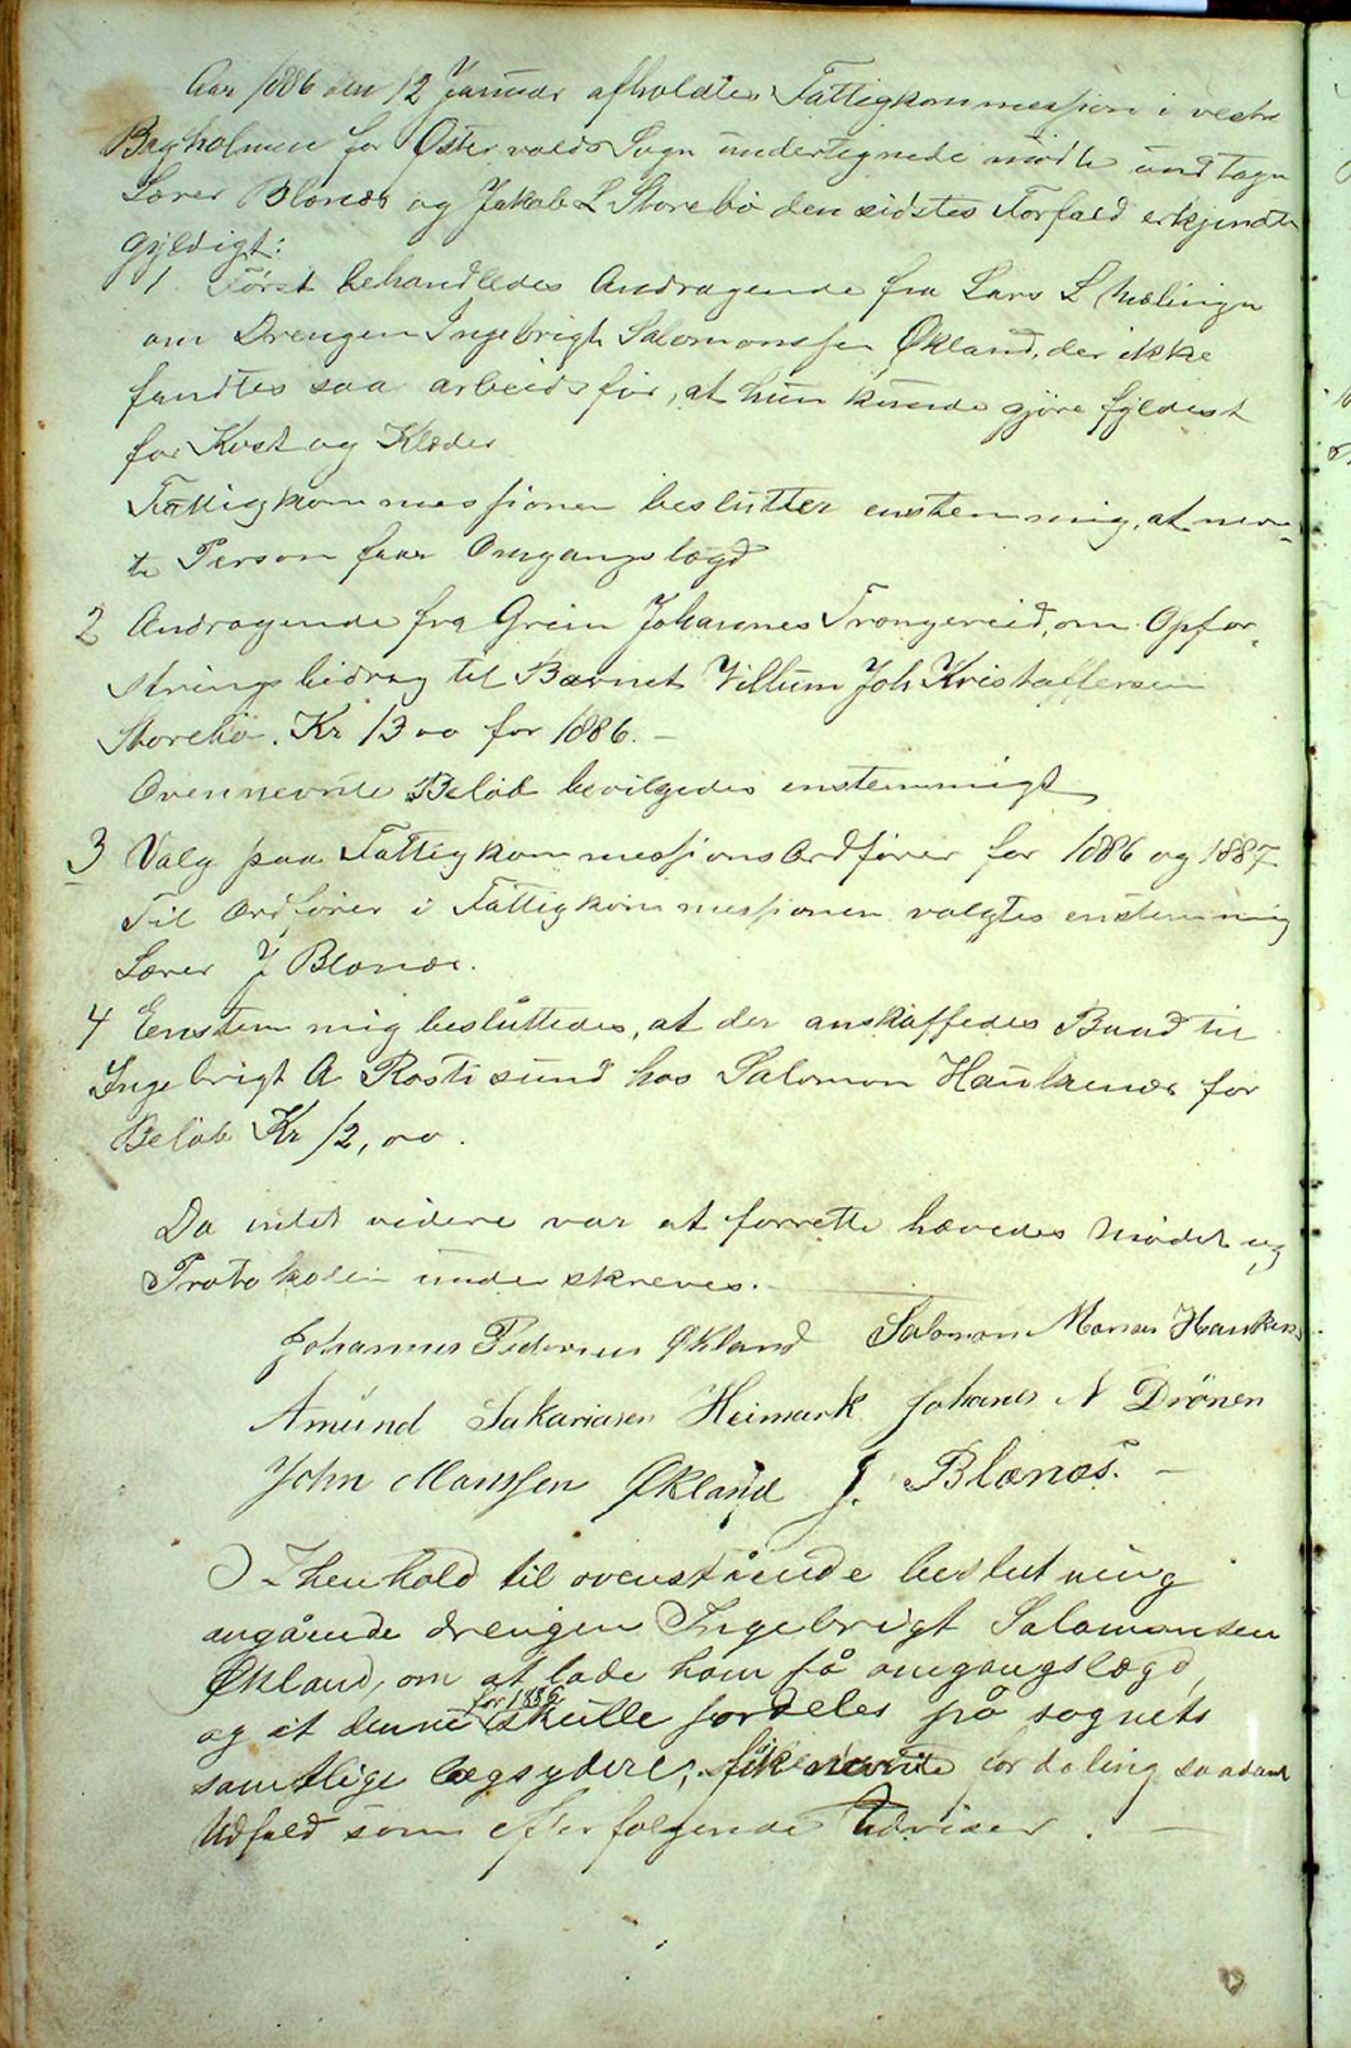 Aar 1886 den 12 Januar afholdtes Fattigkommessjon i vestre
Bagholmen for Østervolds Sogn undertegnede mødte undtagen
Lærer Blænes og Jakob L Storebø den sidstes Forfald erkjendtes
gyldigt:
1 Først behandledes Andragende fra Lars L
om Drengen Ingebrigt Salomonssen Økland, der ikke
fandtes saa arbeidsfør, at hun kunde gjøre fyldest
for Kost og Klæder
Fattigkommessjonen beslutter enstemmig, at nævn-
te Person faar Omgangslægd
2 Andragende fra Grim Johannes Trongereid, om Opfor-
strings bidrag til Barnet Villum Joh Kristoffersen
Storebø. Kr 13 00 for 1886. –
Ovennevnte Beløb bevilgedes enstemmigt
3 Valg paa Fattigkommessjons Ordfører for 1886 og 1887
Til Ordfører i Fattigkommessjonen valgtes enstemmig
Lærer J Blænes.
4 Enstemmig besluttedes, at der anskaffedes Baad til
Ingebrigt A Rostisund hos Salomon Haukenes for
Beløb Kr 12,00.
Da intet videre var at forrette hævedes Mødet og
Protokolen underskreves.
Johannes Pedersen Økland Salomon Monsen Hauknes
Amund Sakariasen Heimark Johanes N Drönen
John Monssen Økland J. Blænæs. –
I henhold til ovenstående beslutning
angående drengen Ingebrigt Salamonsen
Økland, om at lade ham få omgangslægd,
for 1886
og at denne skulle fordeles på sognets
samtlige lægsydere, fik nevnte fordeling saadant
Udfald som efterfølgende Udviser. –